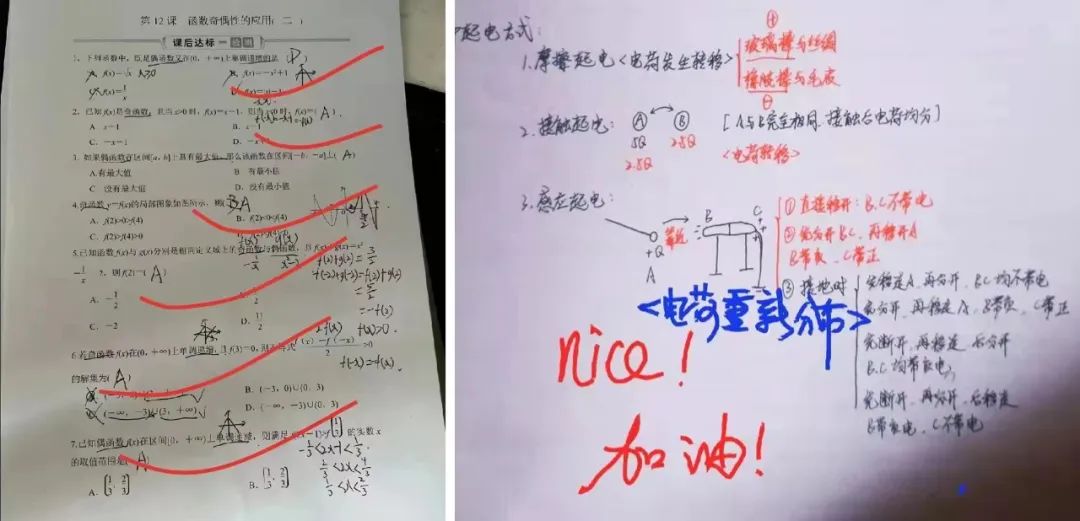 第 12 课 函数奇偶性的应用(二)
课后达标
1. 下列函数中,既是偶函数又在(0,+∞)上单调递增的是 D
A. f(x)=√x
B. f(x)=-x²+1
C. f(x)=1/x
2. 已知f(x)是奇函数,且当x>0时,f(x)=x-1,则当x<0时,f(x)=( A ).
A. x+1
B. x-1
C. -x-1
3. 如果偶函数在区间[a, b]上具有最大值,那么该函数在区间[-b, -a]上( A )
A.有最大值
B. 有最小值
C. 没有最大值
D. 没有最小值
4.奇函数 y=f(x)的局部图象如图所示,则( A
A. f(2)>0>f(4)
B. f(2)<0<f(4)
C. f(2)>f(4)>0
5.已知函数f(x)与g(x)分别是相同定义域上的奇函数与偶函数,且
则f(2)=( A )
A. -1/2
C. -2
D. 11/2
6.若奇函数f(x)在(0,+∞)上单调递增,且f(3)=0,则不等式 f(x)-f(-x)/2 >0
的解集为( A )
B. (-3, 0)∪(0, 3)
(-∞, -3)∪(3, +∞)
D. (-∞, -3)∪(0, 3)
f(-x)=-f(x).
7.已知偶函数f(x)在区间[0,+∞)上单调递减,则满足 的实数x
的取值范围是( A )
-1/3<2x-1<1/3
2/3<2x<4/3
1/3<x<2/3
A. (1/3, 2/3)
B. [1/3, 2/3]
起电方式:
⊕
1.摩擦起电<电荷发生转移>
玻璃棒与丝绸
橡胶棒与毛皮
⊖
2.接触起电:
A B
[A与B完全相同,接触后电荷均分]
5Q 2.5Q
2.5Q
<电荷转移>
3.感应起电:
B C
靠近
+Q
A
①直接移开:B.C不带电
②先分开BC,再移开A
B带负,C带正
③接地时
先移走A,再分开,BC均不带电
先分开,再移走A,B带负,C带正
先断开,再移走,后分开
B.C均带负电
先断开,再分开,后移走
B带负电,C不带电
<电荷重新分布>
nice!
加油!